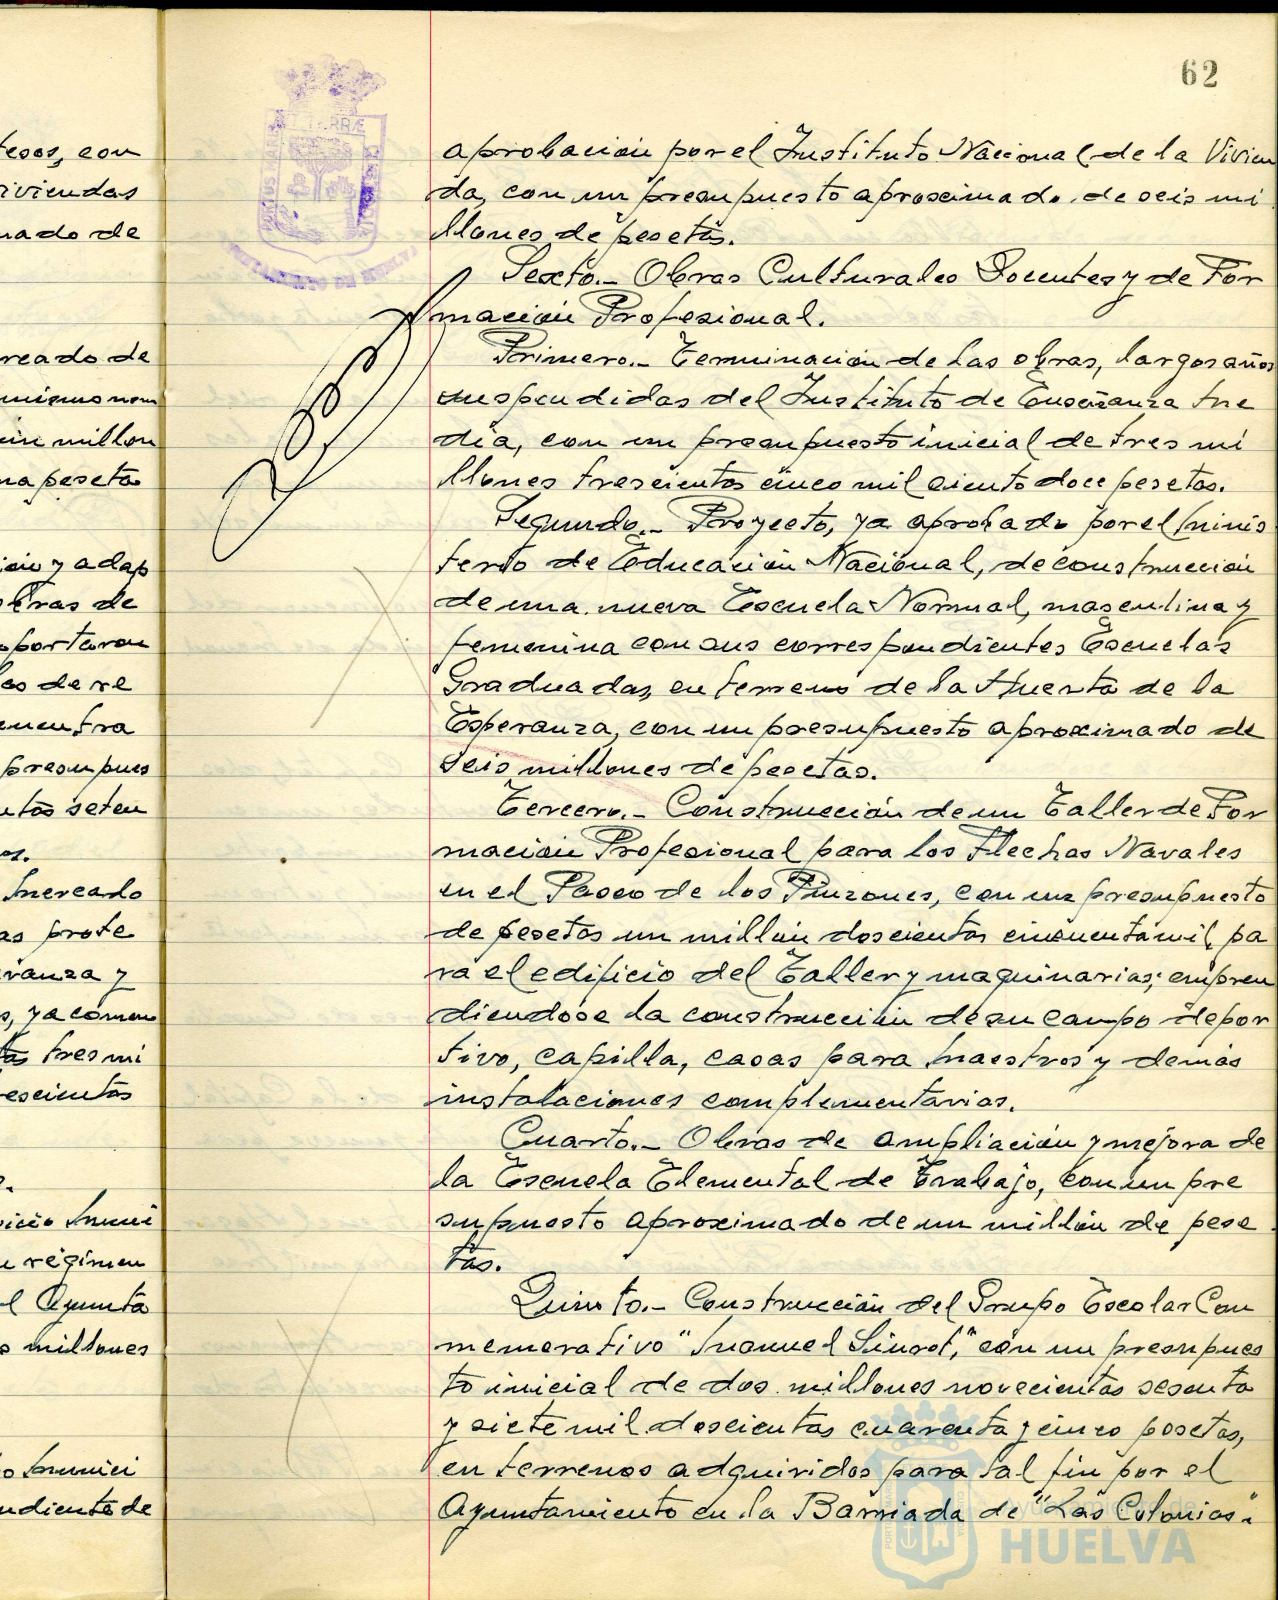 62
aprobación por el Instituto Nacional de la Vivien
da, con un presupuesto aproximado de seis mi
llones de pesetas.
Sexto.- Obras Culturales Docentes y de For
mación Profesional.
Primero.- Terminación de las obras, largos años
suspendidas del Instituto de Enseñanza Me
dia, con un presupuesto inicial de tres mi
llones trescientas cinco mil ciento doce pesetas.
Segundo.- Proyecto, ya aprobado por el Minis
terio de Educación Nacional, de construcción
de una nueva Escuela Normal, masculina y
femenina con sus correspondientes Escuelas
Graduadas, en terreno de la Huerta de la
Esperanza, con un presupuesto aproximado de
seis millones de pesetas.
Tercero.- Construcción de un Taller de For
mación Profesional para los Flechas Navales
en el Paseo de los Pinzones, con un presupuesto
de pesetas un millón doscientas cincuenta mil, pa
ra el edificio del Taller y maquinarias; empren
diendose la construcción de su campo depor
tivo, capilla, casas para Maestros y demás
instalaciones complementarias.
Cuarto.- Obras de ampliación y mejora de
la Escuela Elemental de Trabajo, con un pre
supuesto aproximado de un millón de pese
tas.
Quinto.- Construcción del Grupo Escolar Con
memorativo "Manuel Siurot," con un presupues
to inicial de dos millones novecientas sesenta
y siete mil doscientas cuarenta y cinco pesetas,
en terrenos adquiridos para tal fin por el
Ayuntamiento en la Barriada de "Las Colonias".
tesos, con
viviendas
mado de
rcado de
mismo nom
un millon
na peseta
ión y adap
obras de
portaron
os de re
cuentra
presupues
ntas seten
Mercado
as prote
ranza y
s, ya comen
tas tres mi
rescientas
icio Muni
u régimen
l Ayunta
s millones
o Munici
ndiente de
AYUNTAMIENTO DE HUELVA
Ayuntamiento de
HUELVA